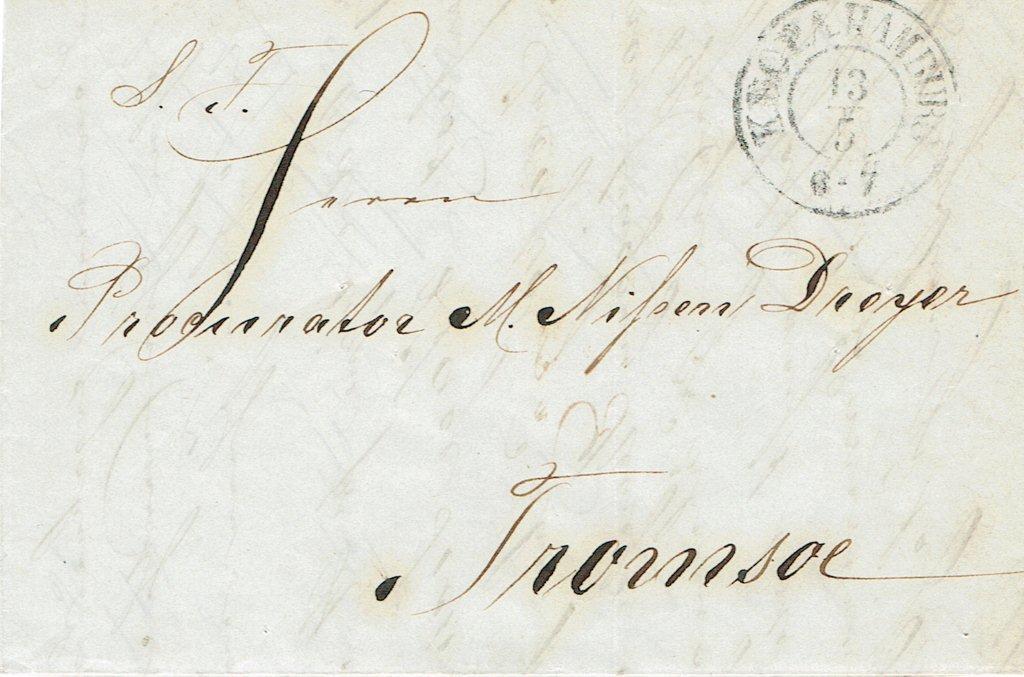 S. T.
Herrn
Procurator M. Nißen Dreyer
Tromsoe
K.D.O.P.A. HAMBURG
13
5
6-7